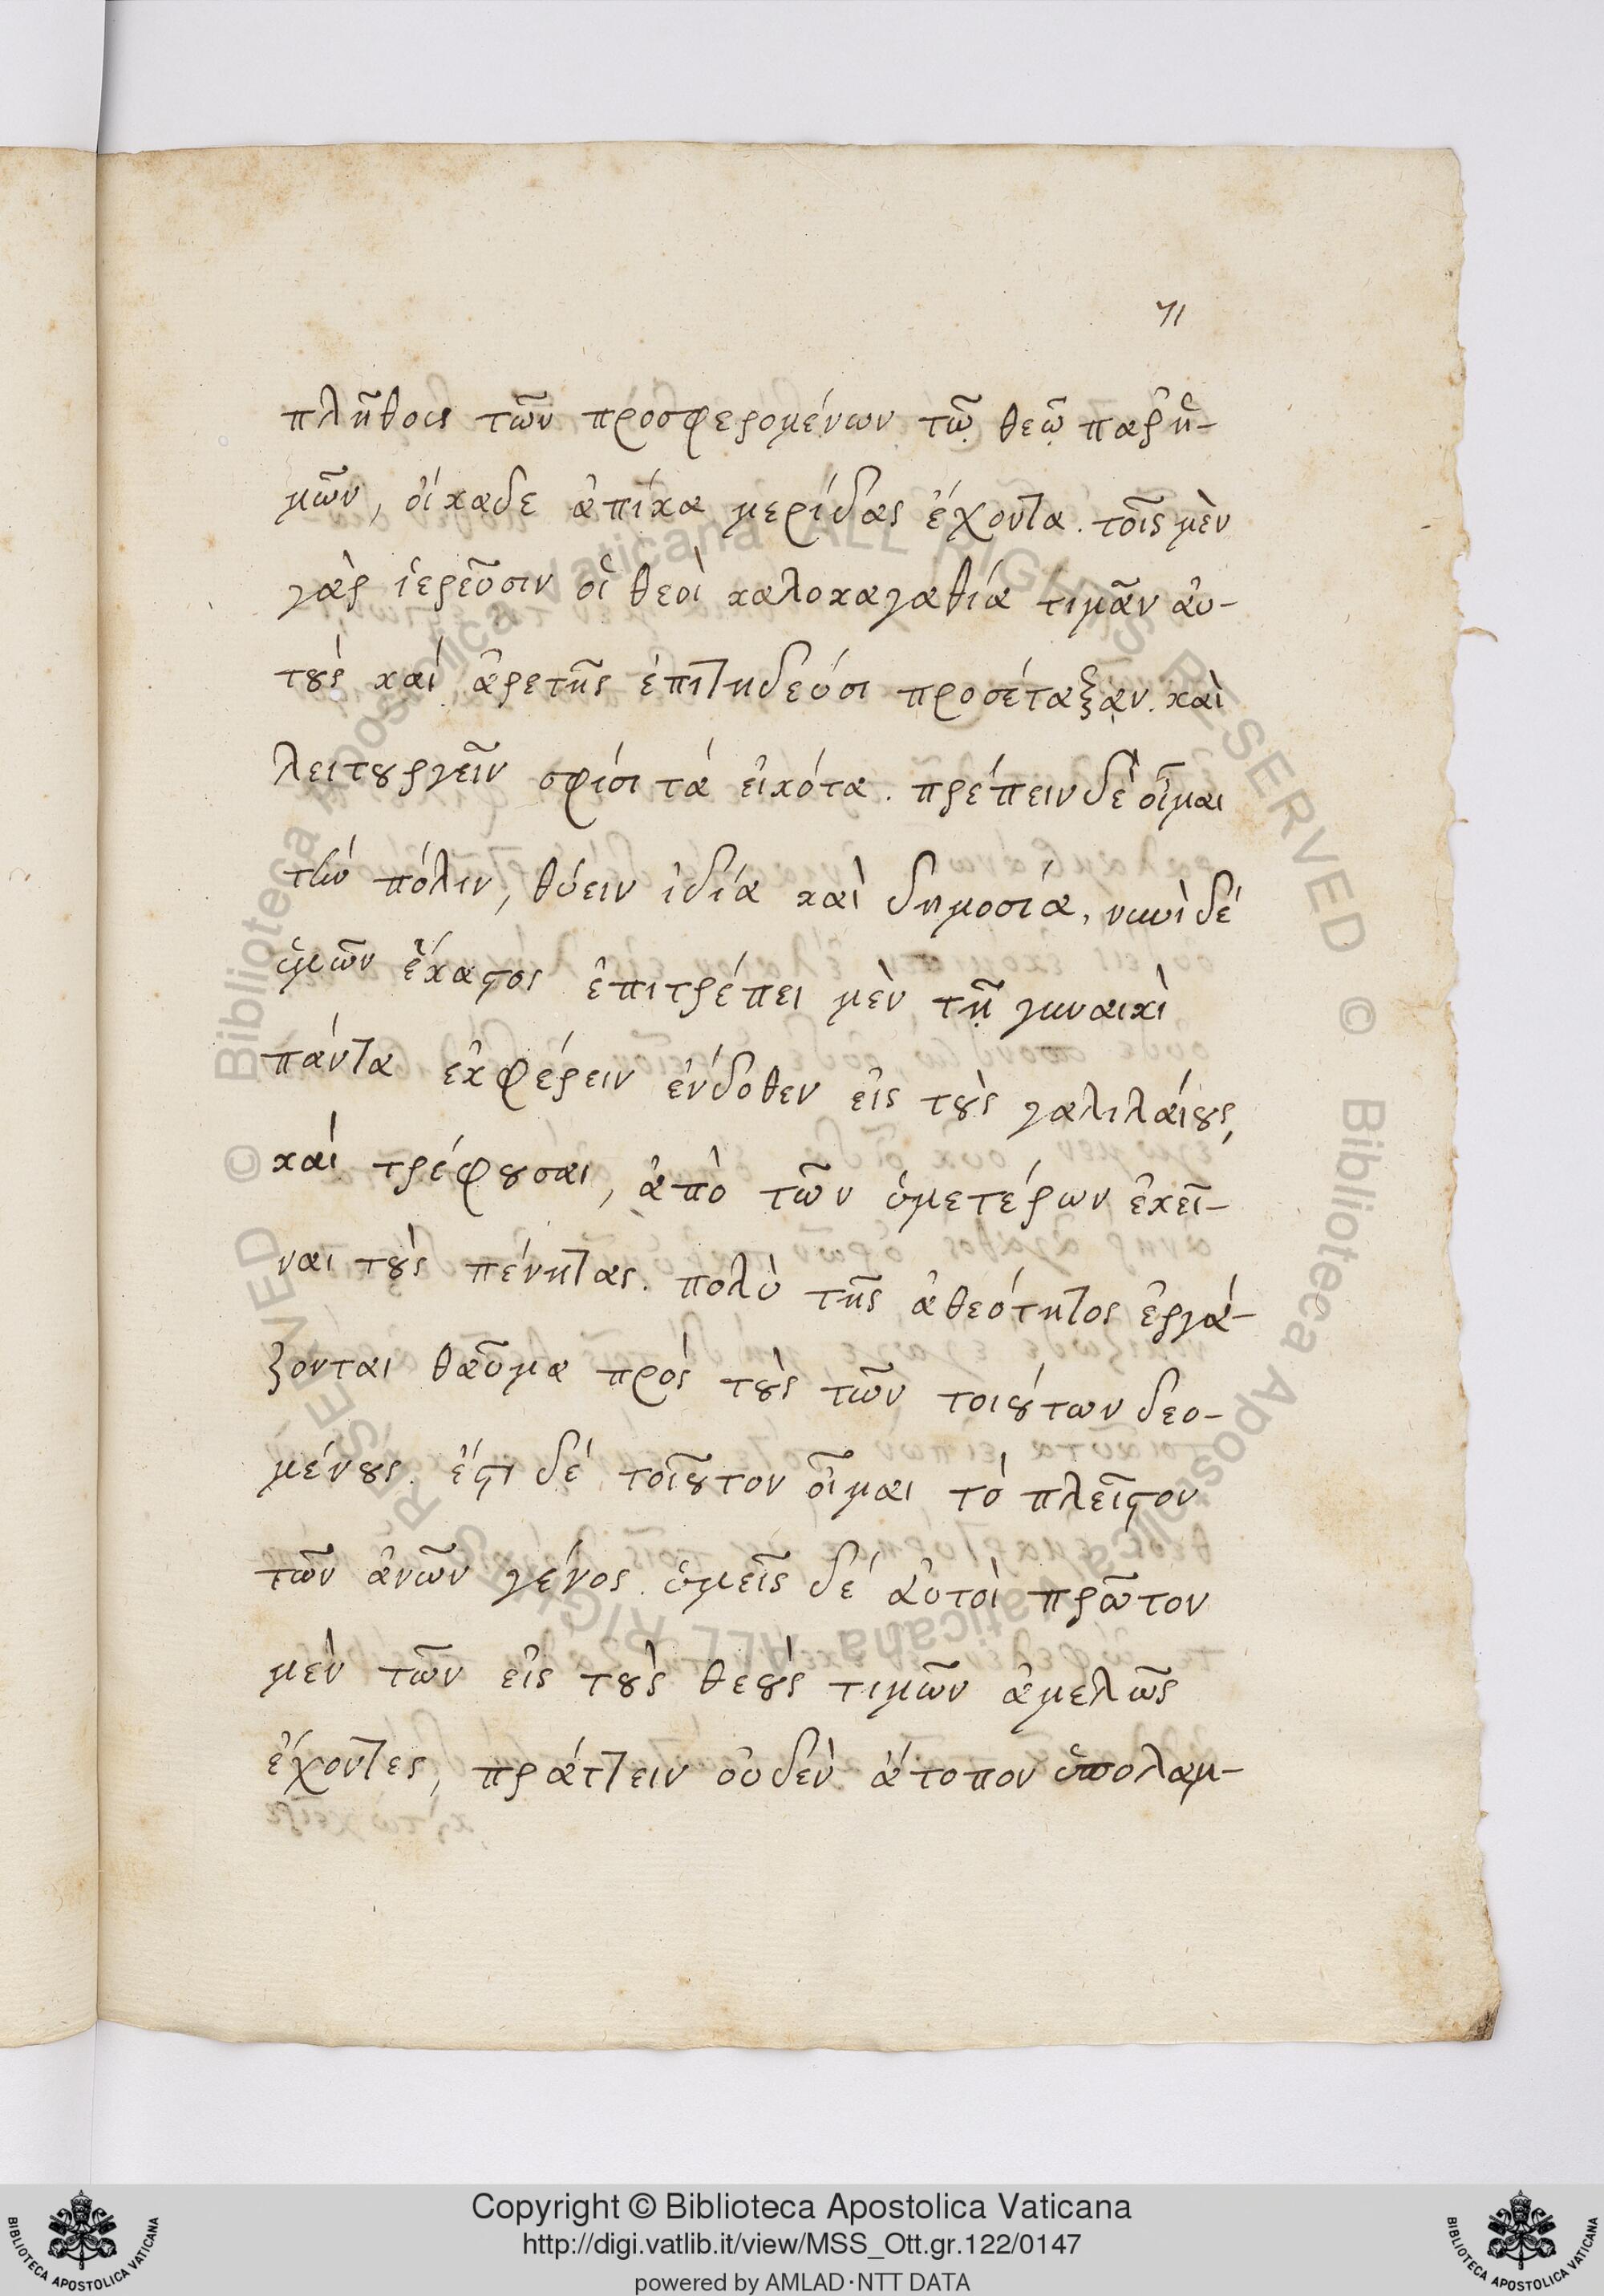 71
πλῆθος τῶν προσφερομένων τῷ θεῷ παρ' ἡ-
μῶν, οἴκαδε ἀπίκα μερίδας ἔχοντα. τοῖς μὲν
γὰρ ἱερεῦσιν οἱ θεοὶ καλοκαγαθία τιμᾶν αὐ-
τοὺς καὶ ἀρετῆς ἐπιτηδεύσι προσέταξαν. καὶ
λειτουργεῖν σφίσι τὰ εἰκότα. πρέπειν δὲ οἶμαι
τὴν πόλιν, θύειν ἰδία καὶ δημοσία, νυνὶ δέ
ὑμῶν ἕκαστος ἐπιτρέπει μὲν τῇ γυναικὶ
πάντα ἐκφέρειν ἔνδοθεν εἰς τοὺς γαλιλαίους,
καὶ τρέφουσαι, ἀπὸ τῶν ὑμετέρων ἐκεῖ-
ναι τοὺς πένητας. πολὺ τῆς ἀθεότητος ἐργά-
ζονται θαῦμα πρὸς τοὺς τῶν τοιούτων δεο-
μένους. ἔστι δὲ τοιοῦτον οἶμαι τὸ πλεῖστον
τῶν ἀνῶν γένος. ὑμεῖς δὲ αὐτοὶ πρῶτον
μὲν τῶν εἰς τοὺς θεοὺς τιμῶν ἀμελῶς
ἔχοντες, πράττειν οὐδὲν ἄτοπον ὑπολαμ-
© Biblioteca Apostolica Vaticana ALL RIGHTS RESERVED © Biblioteca Apostolica Vaticana ALL RIGHTS RESERVED
Copyright © Biblioteca Apostolica Vaticana
http://digi.vatlib.it/view/MSS_Ott.gr.122/0147
powered by AMLAD·NTT DATA
BIBLIOTECA APOSTOLICA VATICANA
BIBLIOTECA APOSTOLICA VATICANA